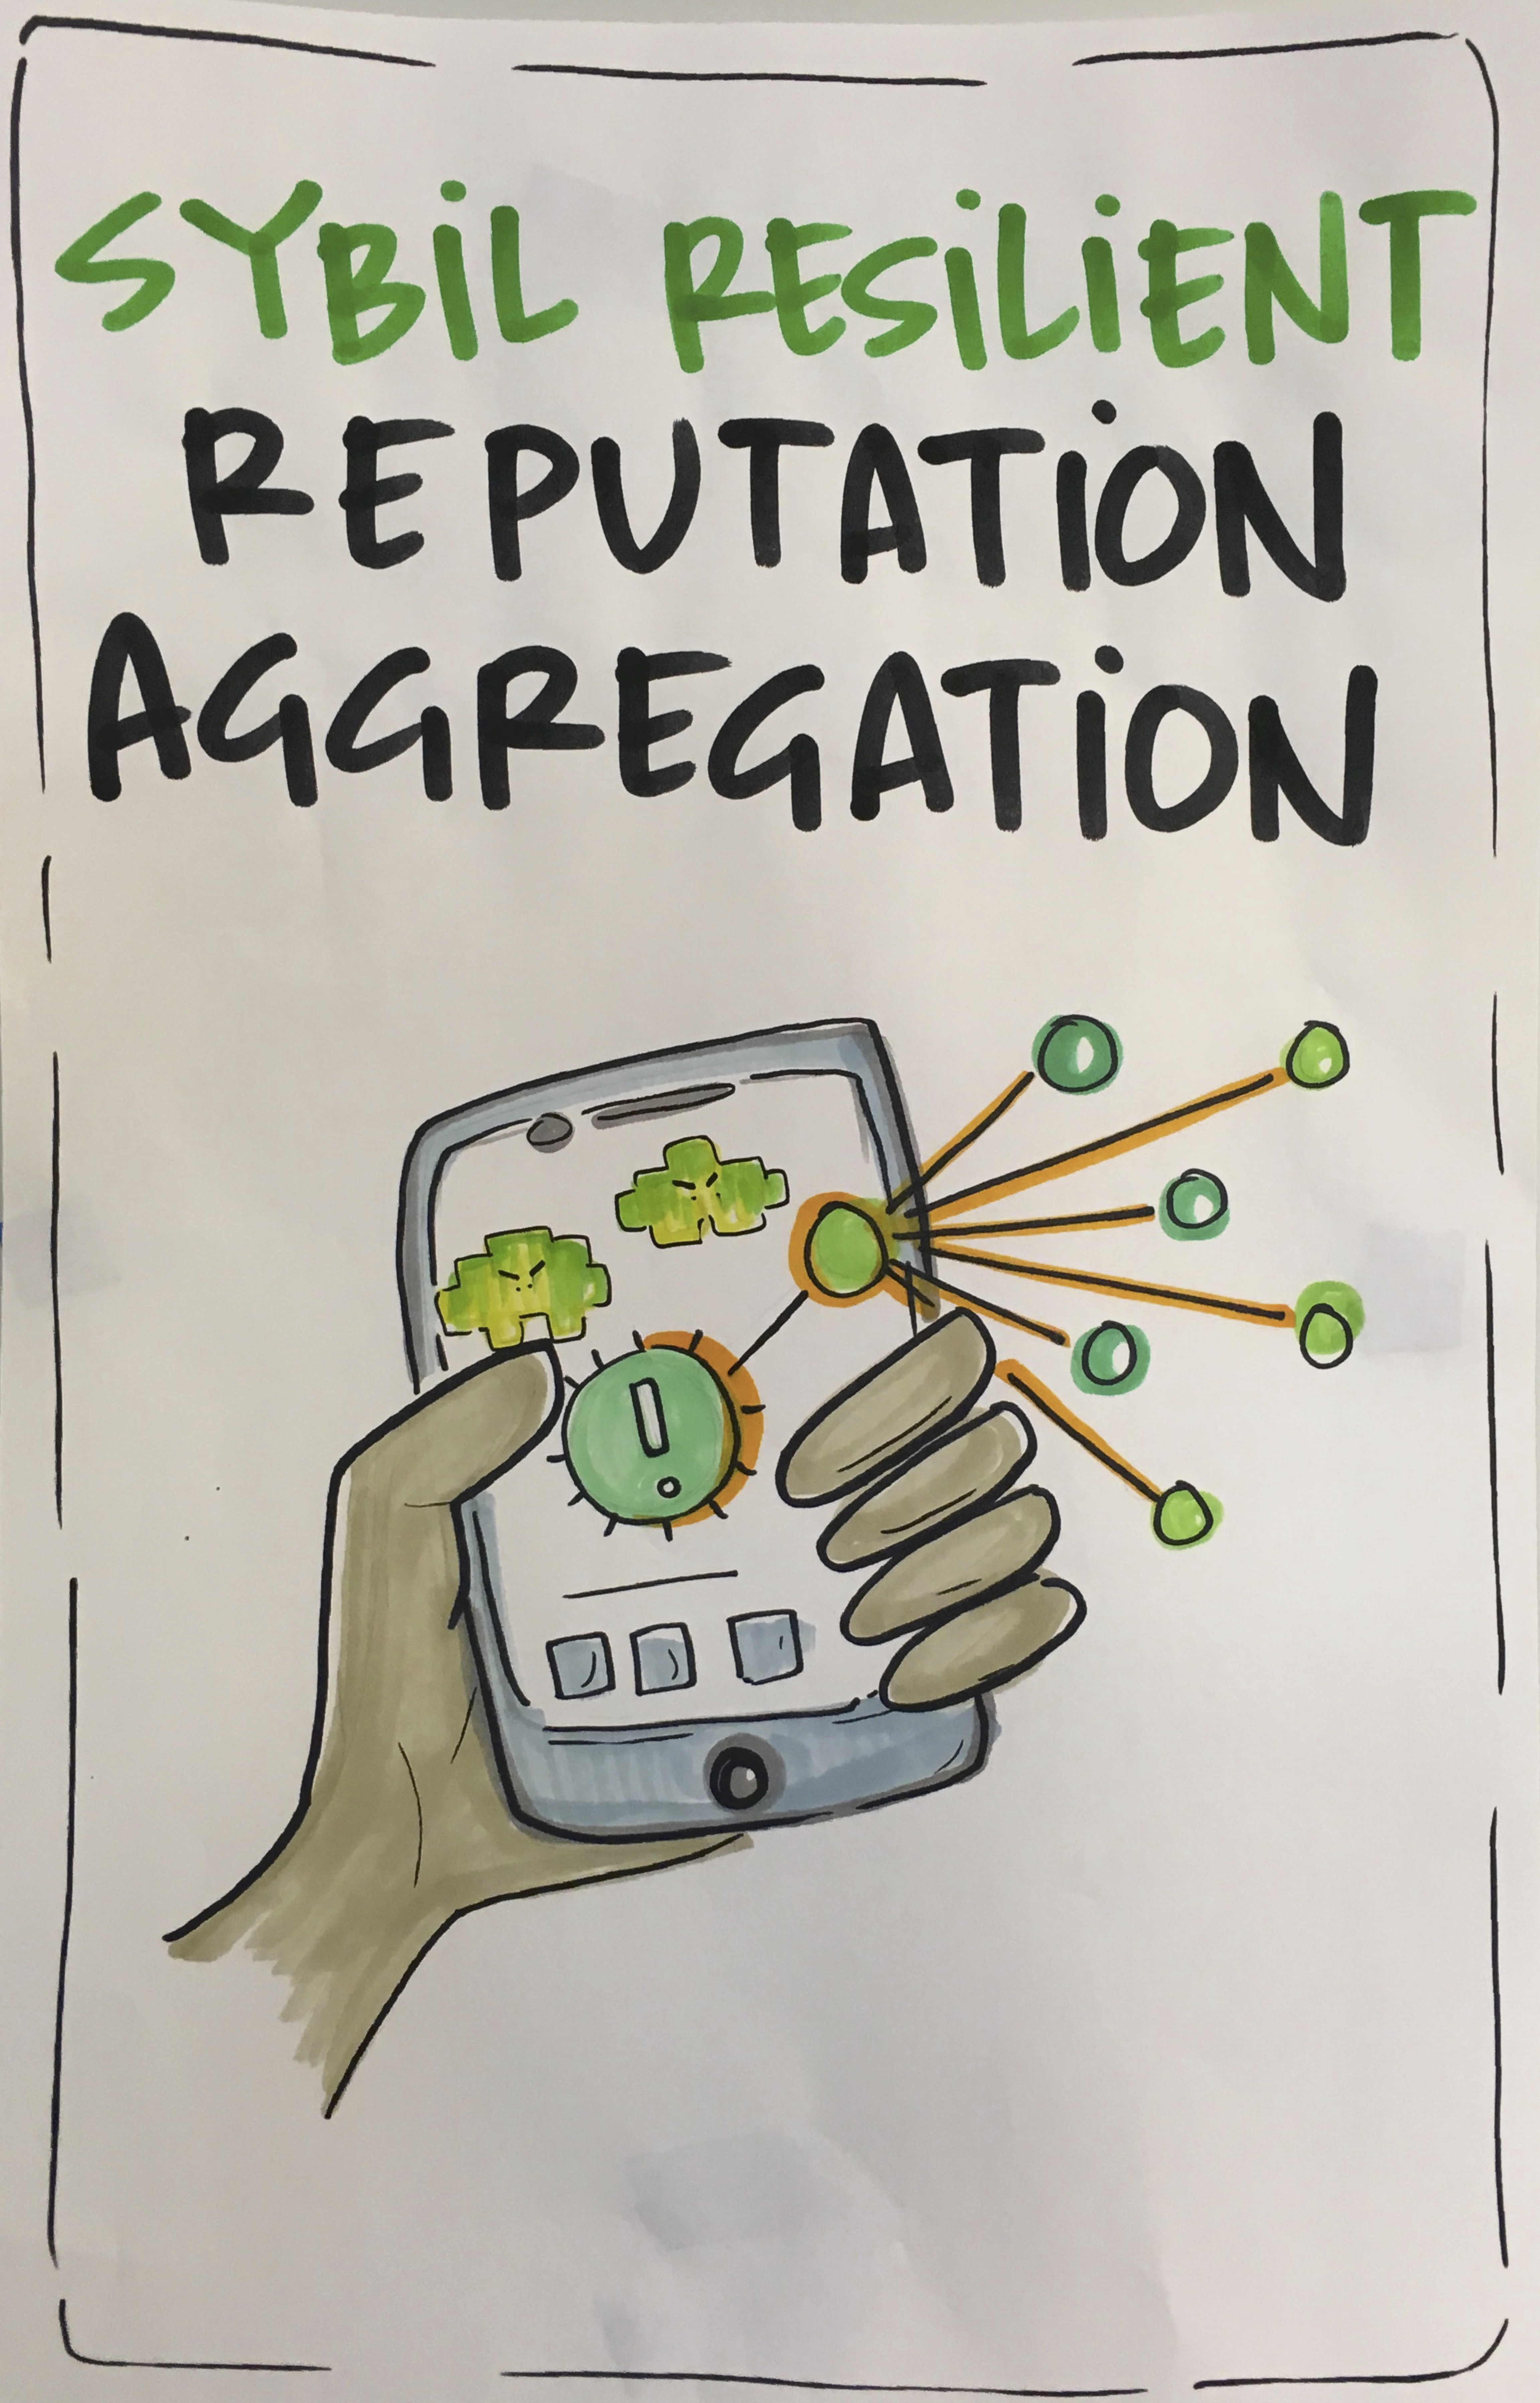 SYBIL RESILIENT
REPUTATION
AGGREGATION
!